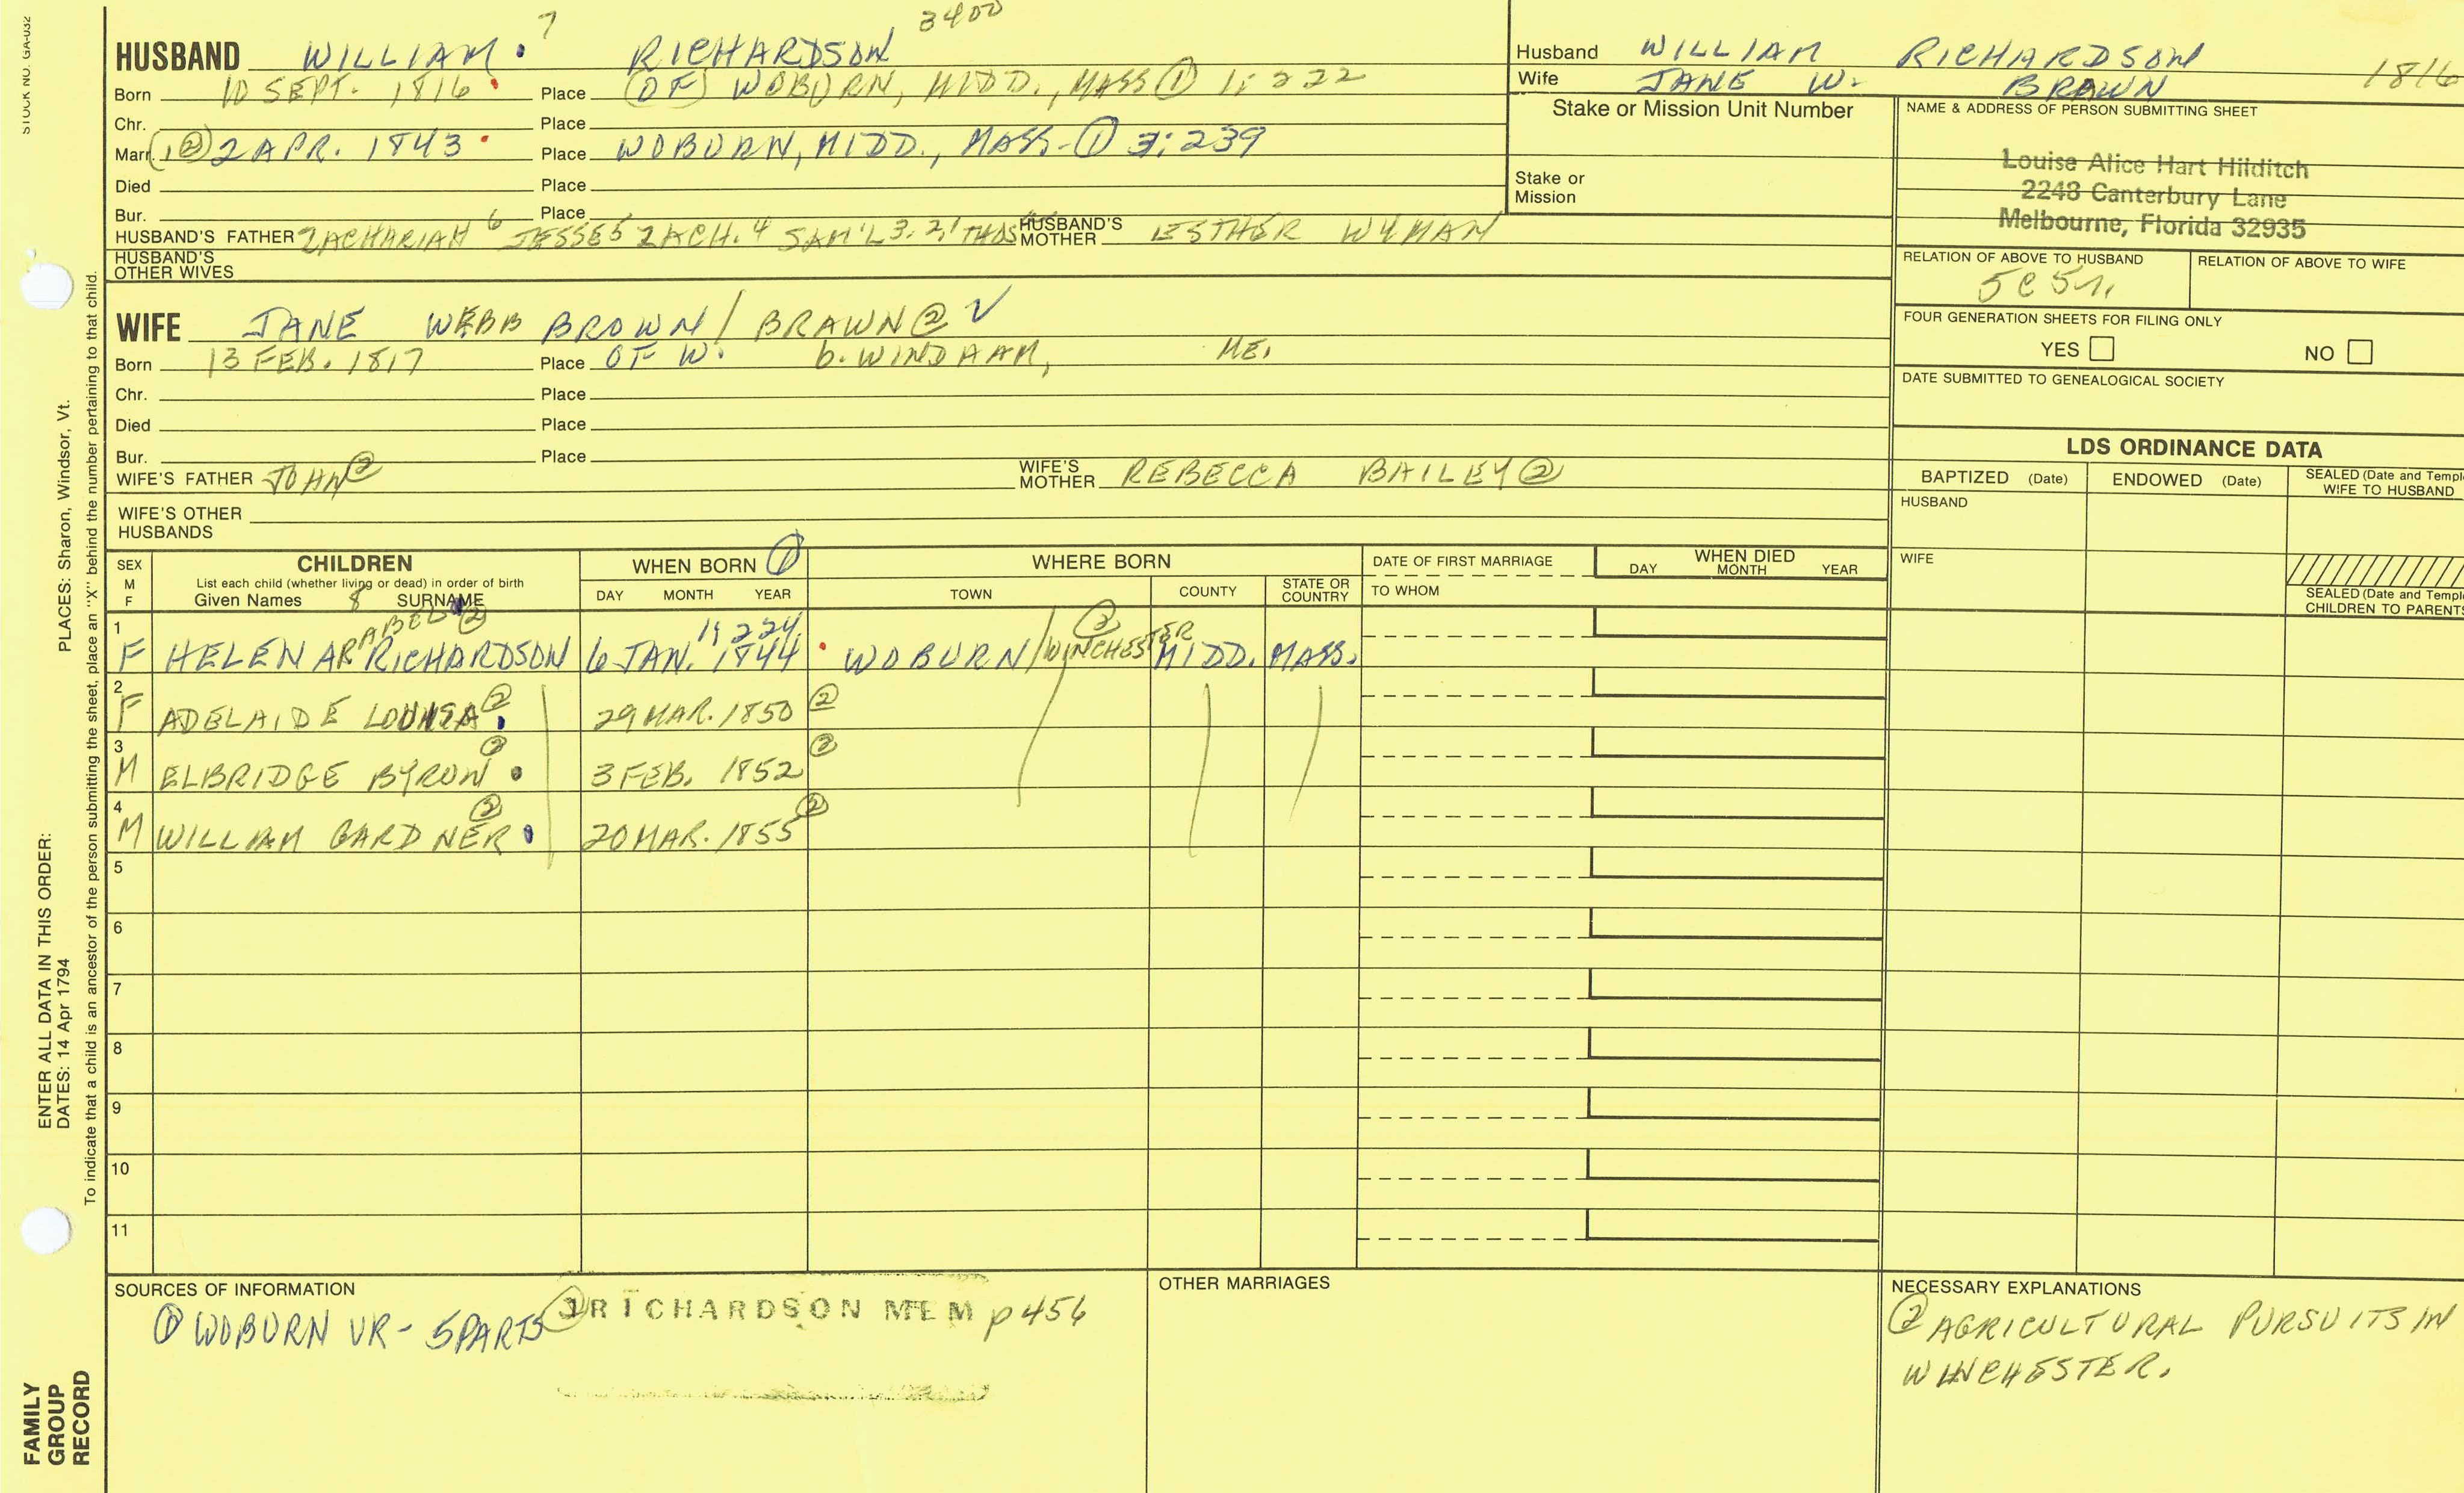 STOCK NO. GA-032
7 3400
HUSBAND WILLIAM. RICHARDSON
Born 10 SEPT. 1816 Place (OF) WOBURN, MIDD., MASS ① 1:222
Chr. Place
Marr. (1②) 2 APR. 1843 Place WOBURN, MIDD., MASS-① 3:239
Died Place
Bur. Place
HUSBAND'S FATHER ZACHARIAH 6 JESSE5 ZACH.4 SAM'L 3,2,1 THOS HUSBAND'S MOTHER ESTHER WYMAN
HUSBAND'S OTHER WIVES
WIFE JANE WEBB BROWN/BRAWN② √
Born 13 FEB. 1817 Place OF W. b. WINDHAM, ME.
Chr. Place
Died Place
Bur. Place
WIFE'S FATHER JOHN② WIFE'S MOTHER REBECCA BAILEY②
WIFE'S OTHER HUSBANDS
Husband WILLIAM RICHARDSON 1816
Wife JANE W. BRAWN
Stake or Mission Unit Number
Stake or Mission
NAME & ADDRESS OF PERSON SUBMITTING SHEET
Louise Alice Hart Hilditch
2248 Canterbury Lane
Melbourne, Florida 32935
RELATION OF ABOVE TO HUSBAND RELATION OF ABOVE TO WIFE
5C 5r.
FOUR GENERATION SHEETS FOR FILING ONLY
YES NO
DATE SUBMITTED TO GENEALOGICAL SOCIETY
LDS ORDINANCE DATA
BAPTIZED (Date) ENDOWED (Date) SEALED (Date and Templ WIFE TO HUSBAND
HUSBAND
WIFE
SEALED (Date and Templ CHILDREN TO PARENTS
SEX M F CHILDREN WHEN BORN ① WHERE BORN DATE OF FIRST MARRIAGE WHEN DIED
List each child (whether living or dead) in order of birth
Given Names 8 SURNAME DAY MONTH YEAR TOWN COUNTY STATE OR COUNTRY TO WHOM DAY MONTH YEAR
1 F HELEN ARABEL② RICHARDSON 6 JAN. 1844 1:224 WOBURN/WINCHESTER② MIDD. MASS.
2 F ADELAIDE LOUISA② 29 MAR. 1850②
3 M ELBRIDGE BYRON② 3 FEB. 1852②
4 M WILLIAM GARDNER② 20 MAR. 1855②
5
6
7
8
9
10
11
SOURCES OF INFORMATION
① WOBURN VR- 5PARTS ② RICHARDSON MEM p456
OTHER MARRIAGES
NECESSARY EXPLANATIONS
② AGRICULTURAL PURSUITS IN
WINCHESTER.
ENTER ALL DATA IN THIS ORDER:
DATES: 14 Apr 1794
PLACES: Sharon, Windsor, Vt.
To indicate that a child is an ancestor of the person submitting the sheet, place an "X" behind the number pertaining to that child.
FAMILY
GROUP
RECORD